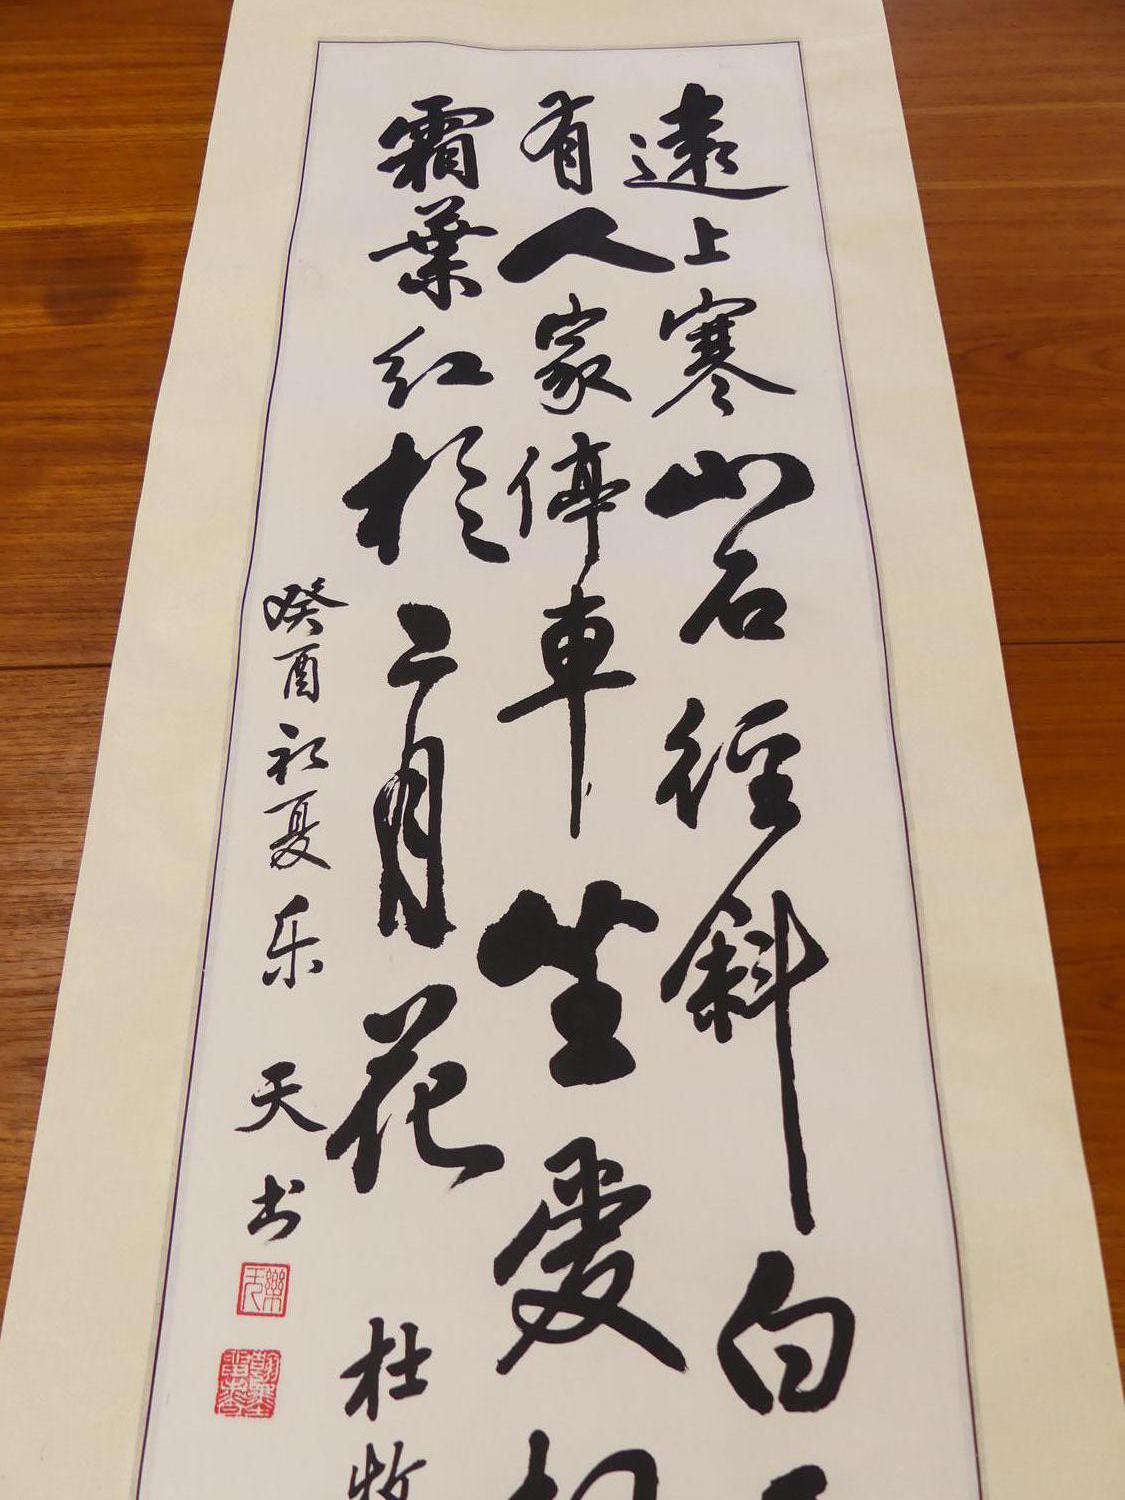 遠上寒山石徑斜白
有人家停車坐愛
霜葉紅於二月花
杜牧
癸酉初夏乐天书
樂天